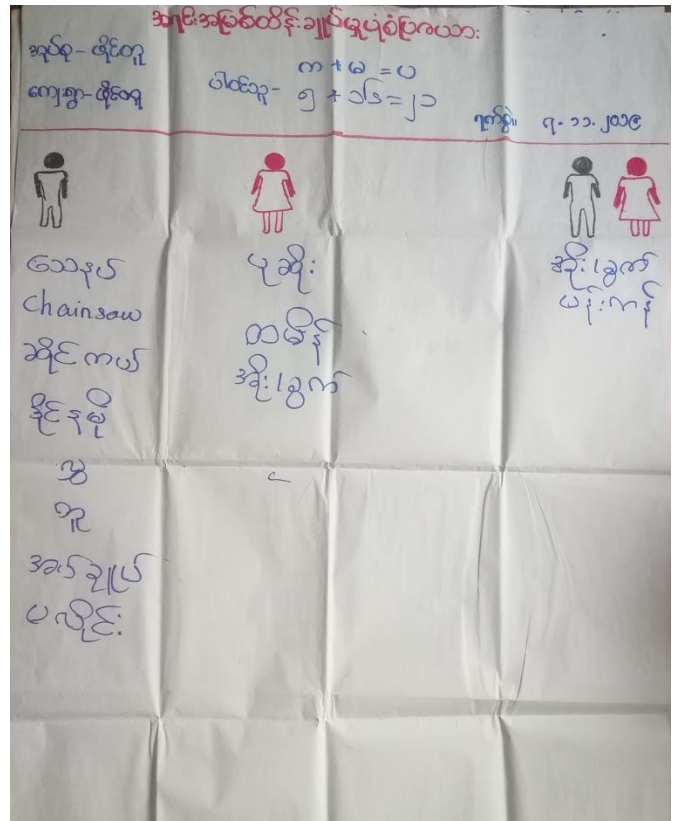 အရင်းအမြစ်ထိန်းချုပ်မှုပုံစံပြဇယား
အုပ်စု - ဖိုင်တူ
က + မ = ပ
ကျေးရွာ - ဖိုင်တူ
ပါဝင်သူ - ၅ + ၁၆ = ၂၁
ရက်စွဲ။ ၇.၁၁.၂၀၁၉
သေနပ်
Chainsaw
ဆိုင်ကယ်
ဒိုင်နမို
လွှ
အပ်ချုပ်
ပလိုင်း
ပုဆိုး
ထမိန်
အိုး/ခွက်
အိုး/ခွက်
ပန်းကန်